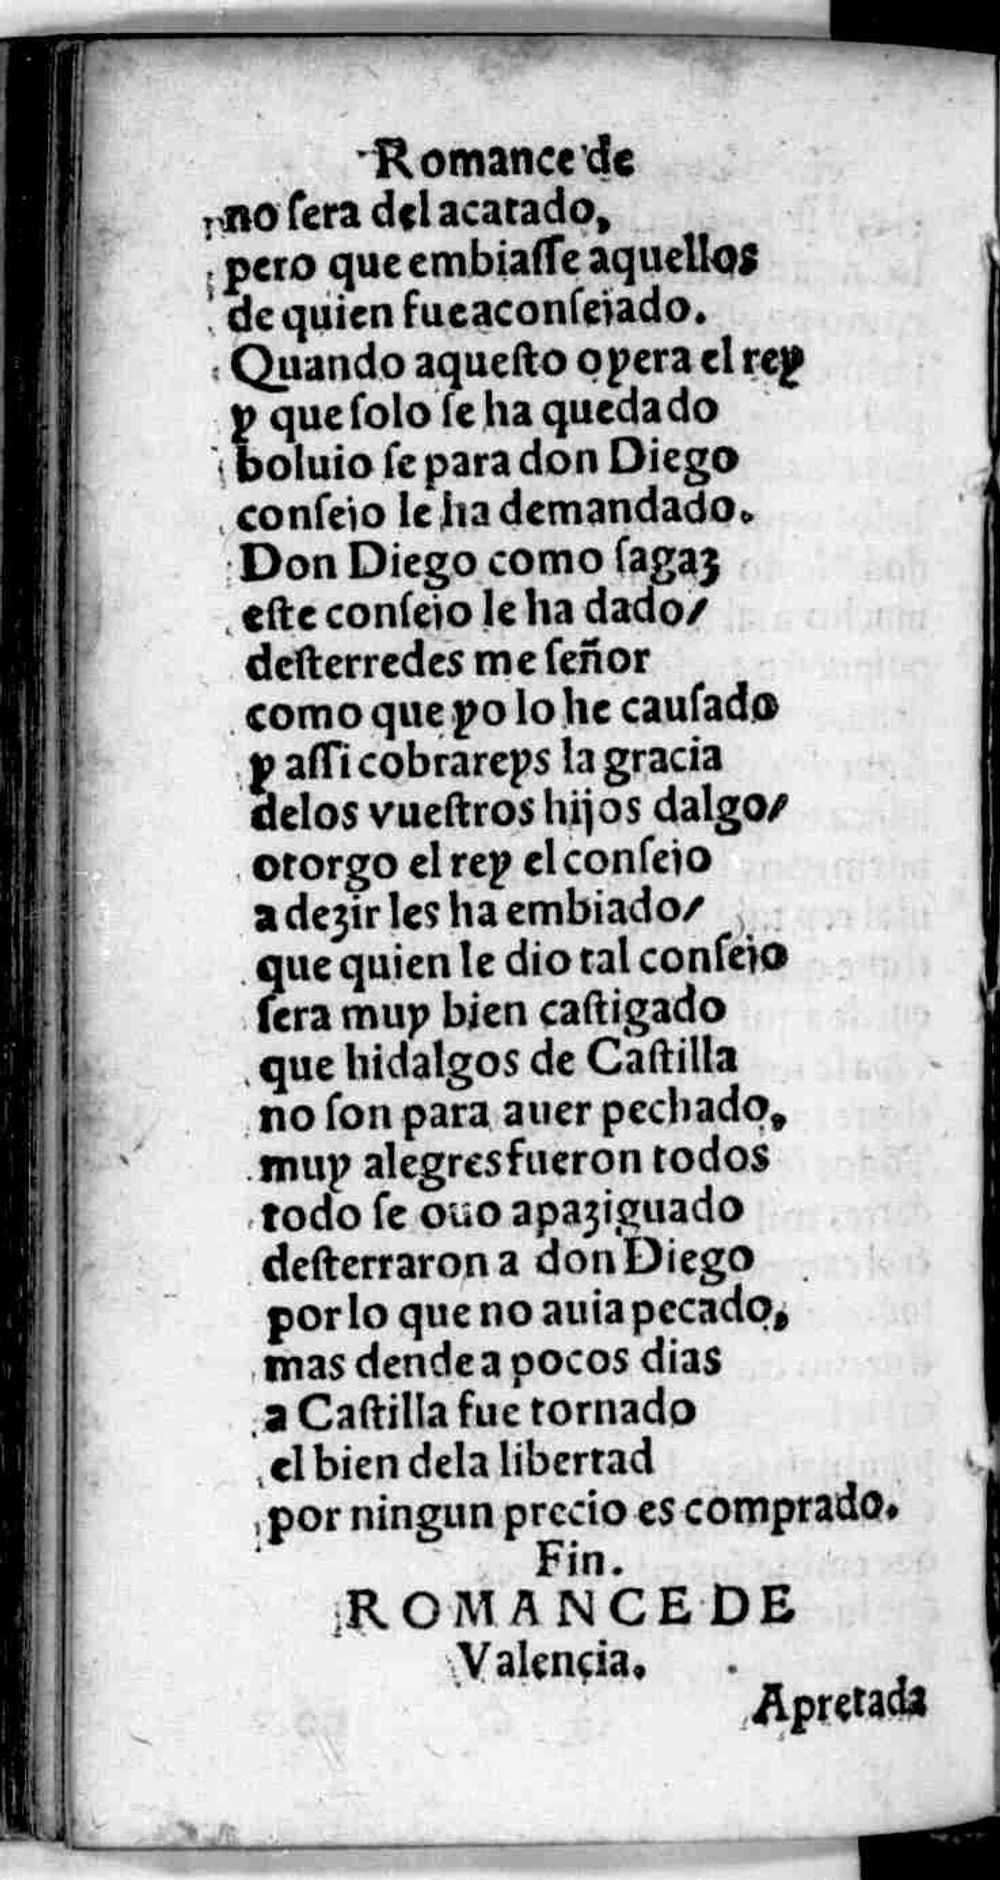 Romance de
no ſera del acatado,
pero que embiaſſe aquellos
de quien fue aconſeiado.
Quando aqueſto oyera el rey
y que ſolo ſe ha quedado
boluio ſe para don Diego
conſeio le ha demandado.
Don Diego como ſagaz
eſte conſeio le ha dado/
deſterredes me ſeñor
como que yo lo he cauſado
y aſſi cobrareys la gracia
delos vueſtros hijos dalgo/
otorgo el rey el conſeio
a dezir les ha embiado/
que quien le dio tal conſeio
ſera muy bien caſtigado
que hidalgos de Caſtilla
no ſon para auer pechado,
muy alegres fueron todos
todo ſe ouo apaziguado
deſterraron a don Diego
por lo que no auia pecado,
mas dende a pocos dias
a Caſtilla fue tornado
el bien dela libertad
por ningun precio es comprado.
Fin.
ROMANCE DE
Valencia.
Apretada